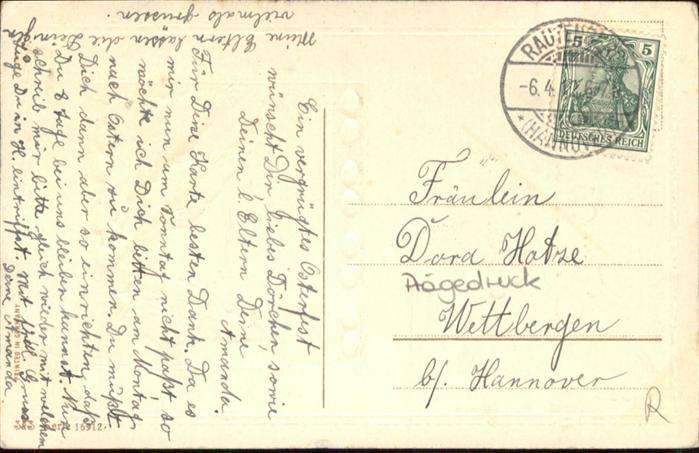 Ein vergnügtes Osterfest
wünscht Dir, liebes Dorchen, sowie
Deinen l. Eltern Deine
Amanda.
Für Deine Karte besten Dank. Da es
mir nun am Sonntag nicht paßt so
möchte ich Dich bitten am Montag
nach Ostern zu kommen. Du mußt
Dich dann aber so einrichten, daß
Du 8 Tage bei uns bleiben kannst. Nun
schreib mir bitte gleich wieder mit welchem
Zuge Du in H. eintriffst. Mit Gruss
Deine Amanda
Meine Eltern lassen die Deinen
vielmals grüssen.
5 5
DEUTSCHES REICH
-6.4.
(HANNOV
Fräulein
Dora Hotze
Prägedruck
Wettbergen
b/ Hannover
R